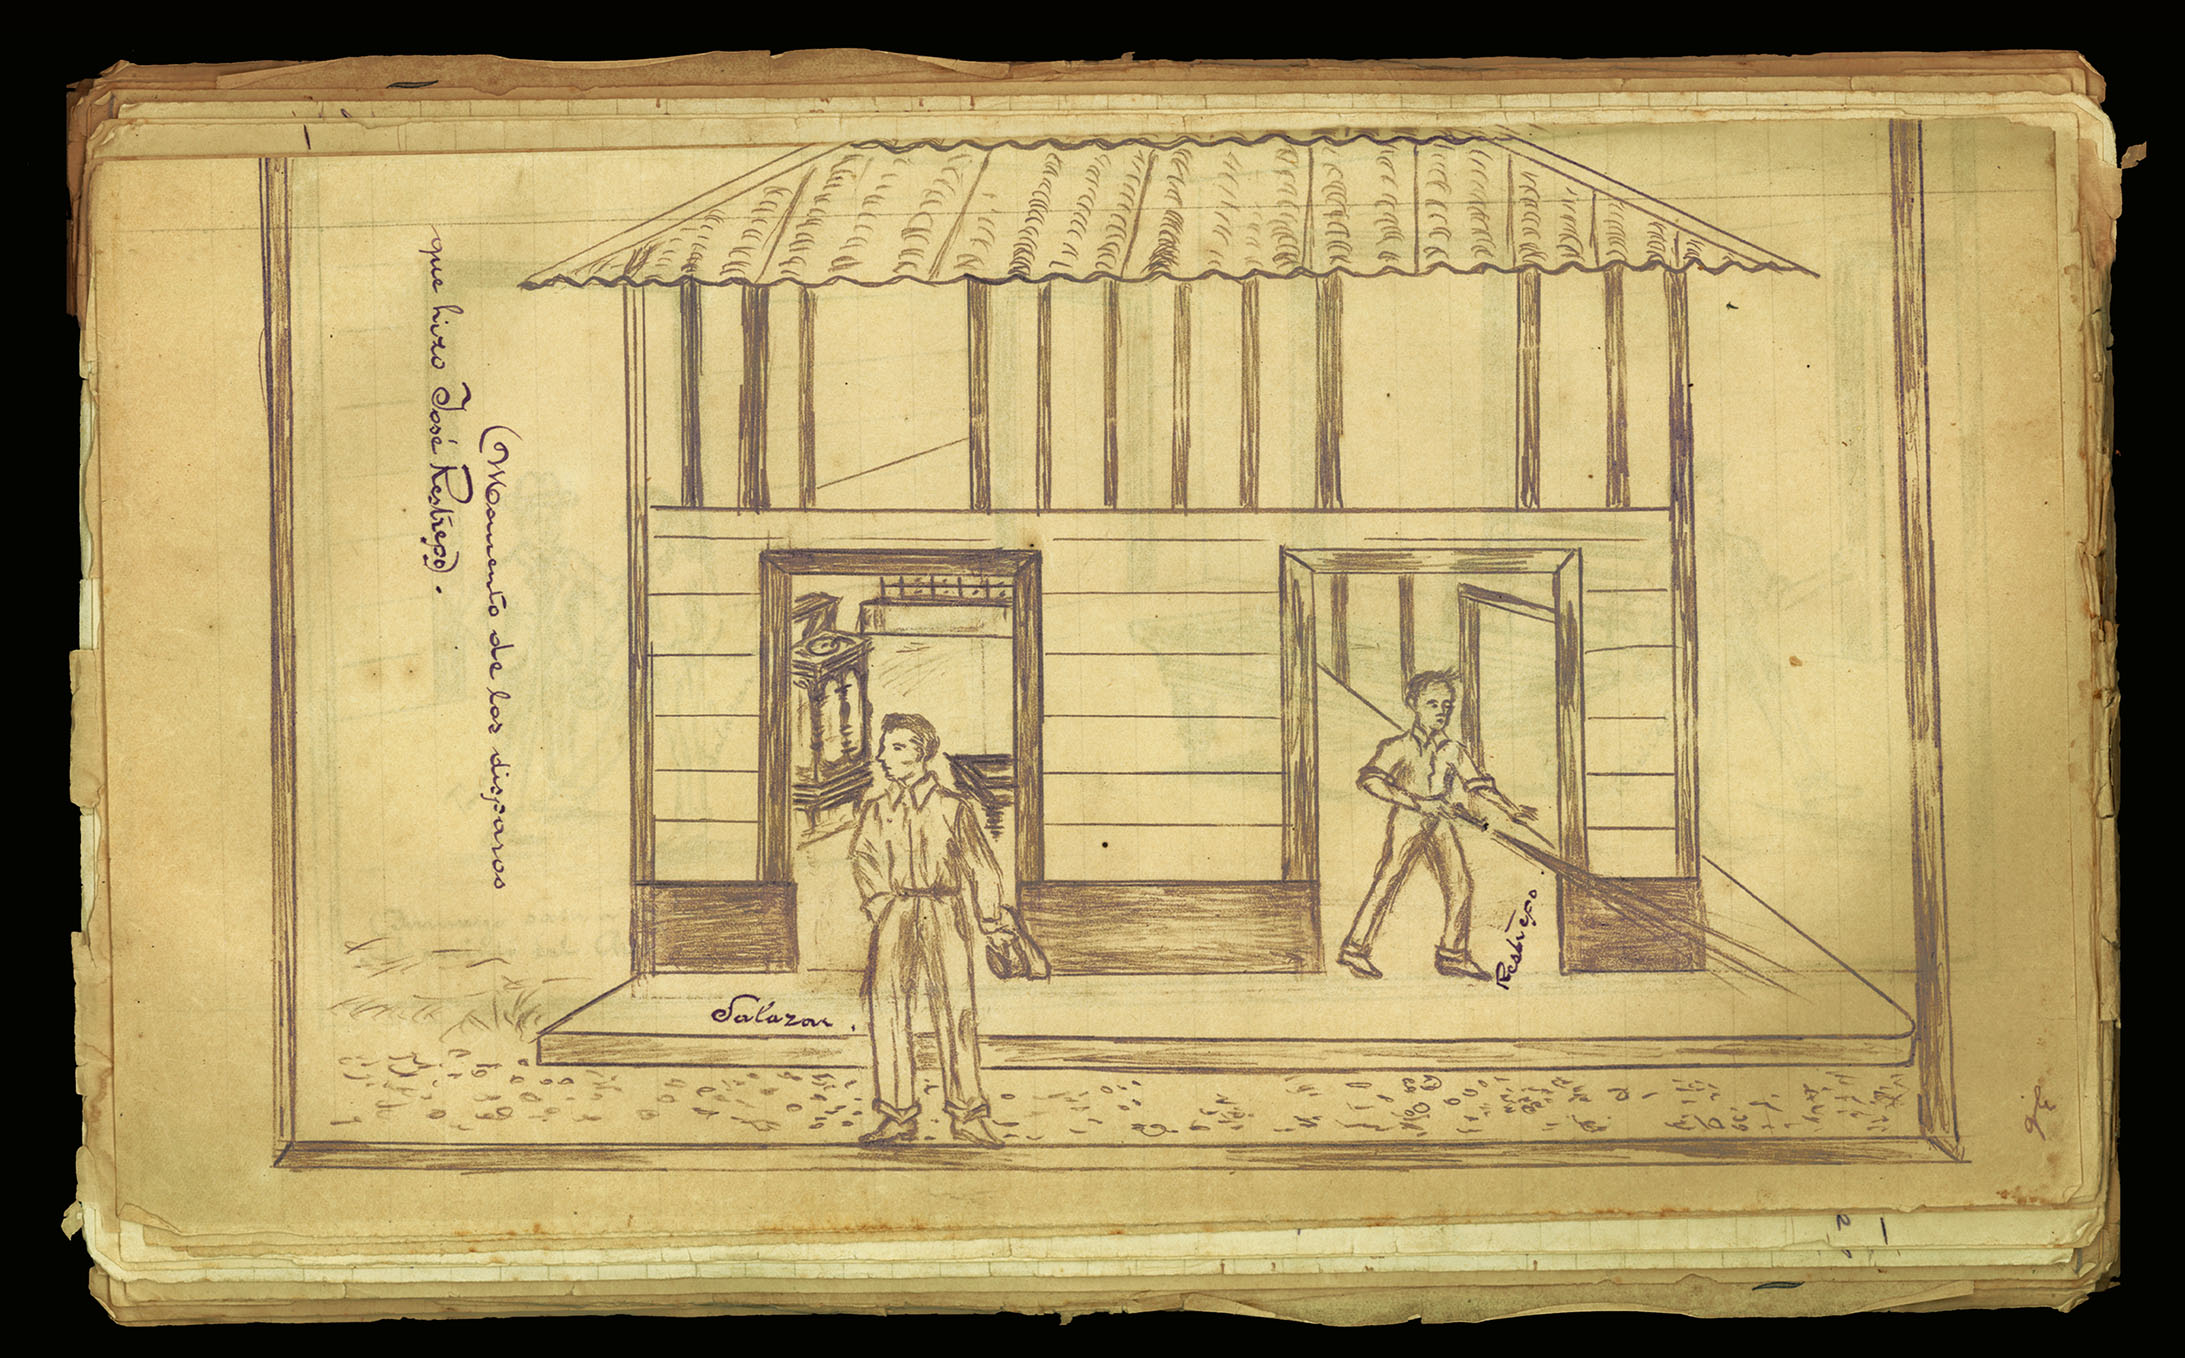 (Momento de los disparos
que hizo José Restrepo).
Salazar.
Restrepo.